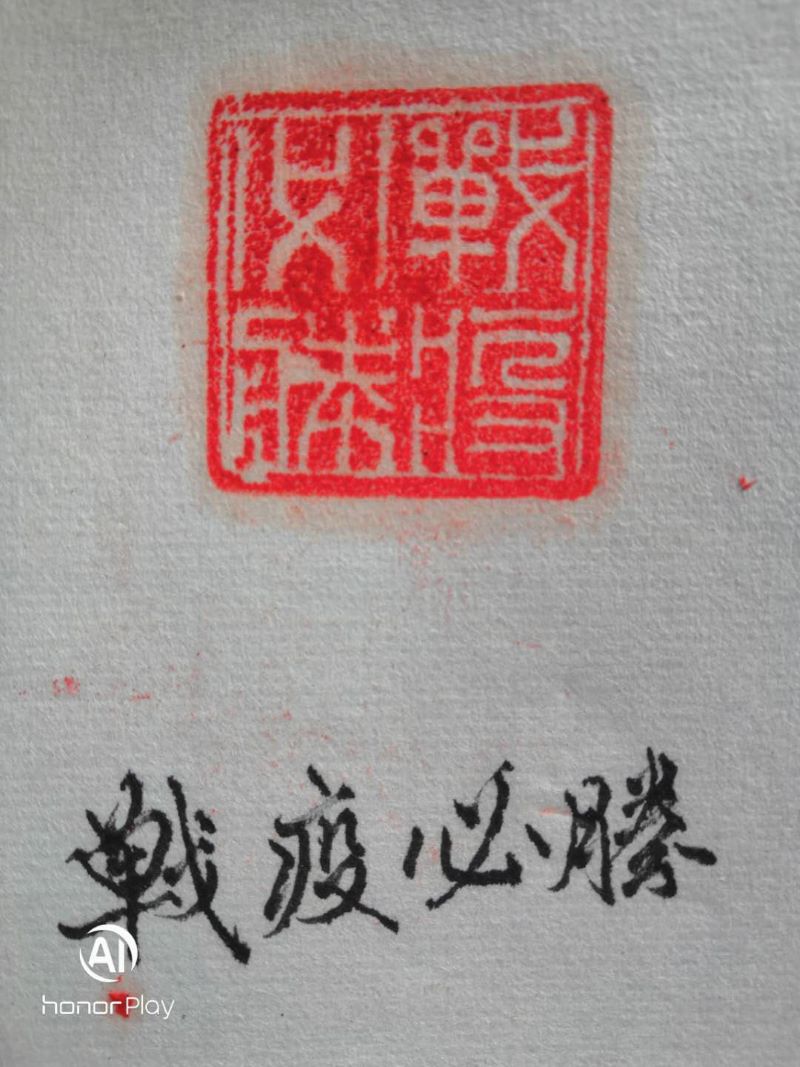 戰疫
必勝
戰疫必勝
AI
honor Play